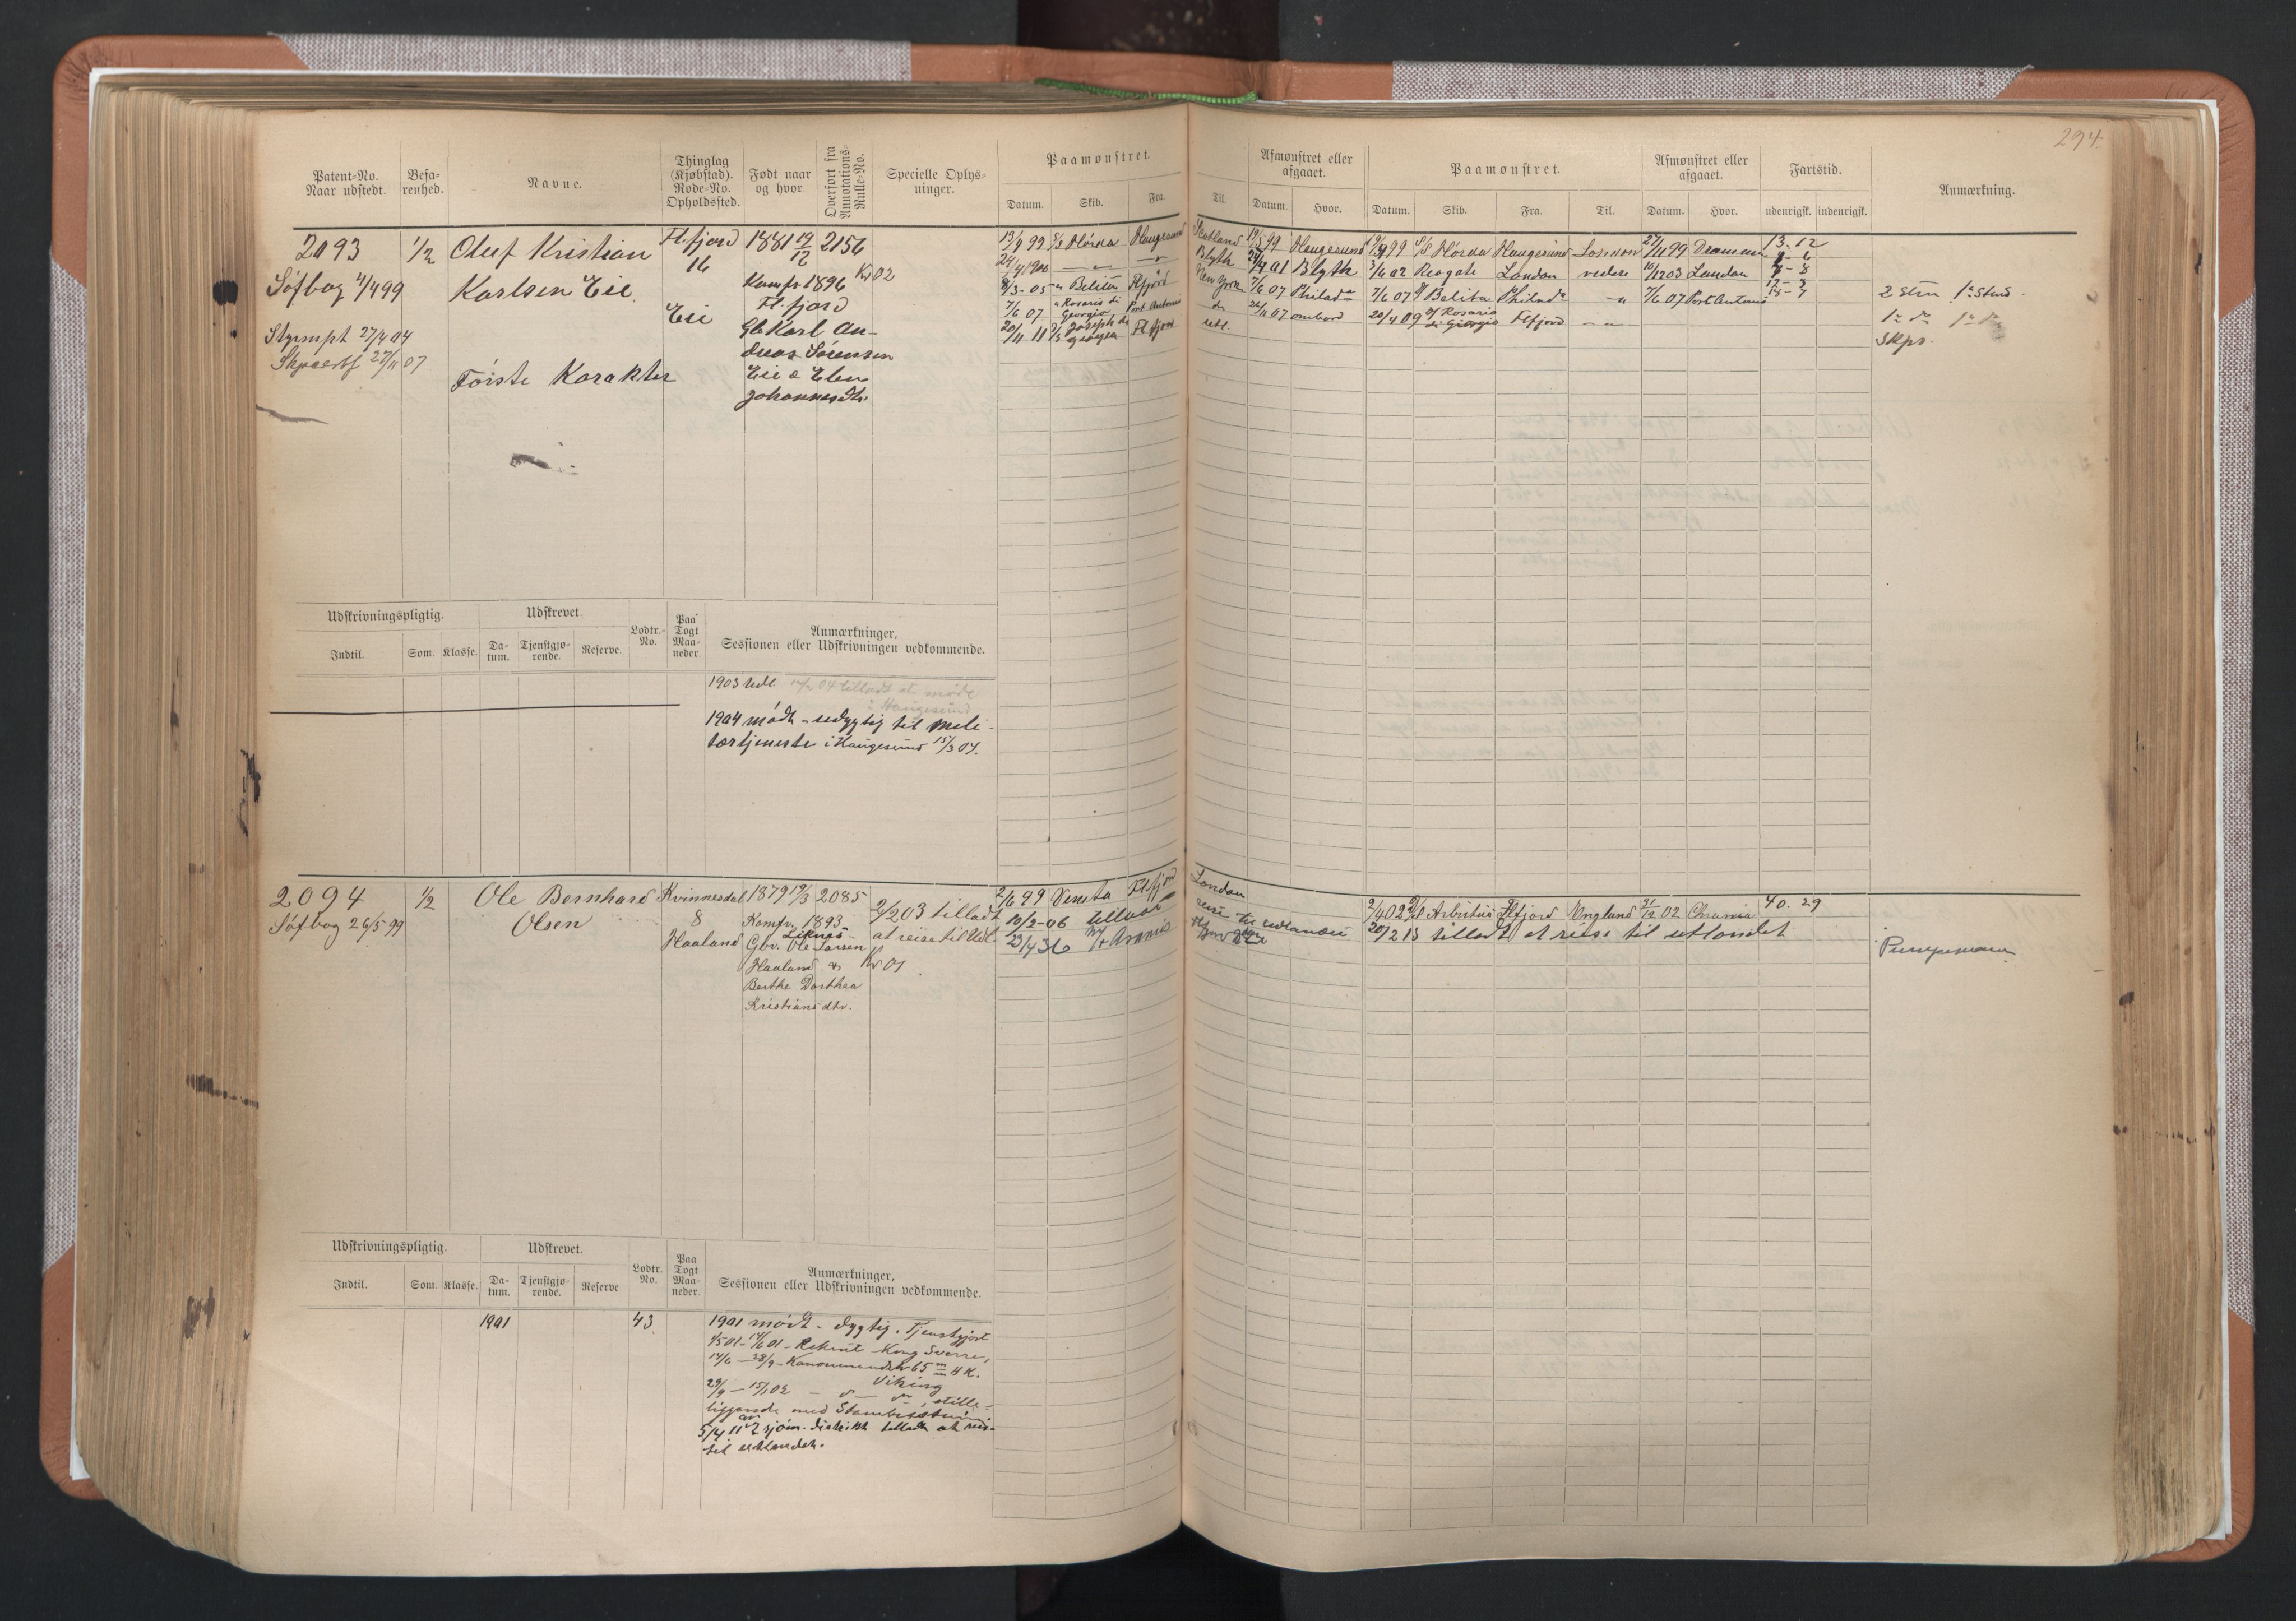 294.
Patent-No. Naar udstedt. Befarenhed. Navne. Thinglag (Kjøbstad). Rode-No. Opholdssted. Født naar og hvor Overført fra Annotations-Rulle-No. Specielle Oplysninger. Paamønstret. Afmønstret eller afgaaet. Paamønstret. Afmønstret eller afgaaet. Fartstid. Anmærkning.
Datum. Skib. Fra. Til. Datum. Hvor. Datum. Skib. Fra. Til. Datum. Hvor. udenrigsk. indenrigsk.
2093 1/2 Oluf Kristian Fl.fjord 1881 19/12 2156
16
Søfbog 11/4 99 Karlsen Eie Komfr 1896 Kv 02
Eie Fl.fjord
Styrmpt 27/4 04 Gb Karl An-
Skpcertf 27/11 07 dreas Sørensen
Første Karakter Eie & Elen
Johannesdtr.
Hørda Haugesund Skotland Haugesund 99 S/S Hørda Haugesund London 27/11 99 Drammen 13-12
24/4 1900 Blyth 01 Blyth 3/6 02 Reogate London videre 16/12 03 London
8/3-05 Belita Flfjord New York 7/6 07 Philada 7/6 07 Belita Philada 7/6 07 Port Antonio
7/6 07 Rosario di Giorgio Port Antonio do 26/11 07 ombord 20/4 09 S/S Rosario di Giorgio Flfjord
20/11 11 Joseph di Giorgio Fl fjord utl.
2 Stm 1ste Stmd.
1ste do 1ste do
Skps.
Udskrivningspligtig. Udskrevet. Lodtr.-No. Paa Togt Maaneder. Anmærkninger, Sessionen eller Udskrivningen vedkommende.
Indtil. Som. Klasse. Datum. Tjenstgjørende. Reserve.
1903 Udl. 12/2 04 tilladt at møde
i Haugesund
1904 mødt - udygtig til mili-
tærtjeneste i Haugesund 15/3 04.
2094 1/2 Ole Bernhard Kvinnesdal 1879 19/3 2085 2/2 03 tilladt 2/6 99 Venita Flfjord London
Søfbog 26/5 99 Olsen 8 Komfr. 1893 at reise til Udl. 10/2-06 tilladt reise til udlandet
Haaland Liknes
Gbr. Ole Larsen Kv 01 23/4 36 M/T Aramis
Haaland &
Berthe Dorthea
Kristiansdtr.
2/4 02 Arbutus Flfjord England 31/12 02 Chrania 40. 29
20/2 13 tilladt at reise til utlandet
Pumpemann
Udskrivningspligtig. Udskrevet. Lodtr. No. Paa Togt Maaneder. Anmærkninger, Sessionen eller Udskrivningen vedkommende.
Indtil. Som. Klasse. Datum. Tjenstgjørende. Reserve
1901 43 1901 mødt - dygtig. Tjenstgjort
4/5 01 - 14/6 01 - Rekrut Kong Sverre,
14/6 - 28/9 - Kanonmandsk 65 m/m H.K.
Viking
29/9 - 15/1 02 - stille-
liggende med
5/4 11 av 2 sjøm. distrikt tilladt at reise
til utlandet.